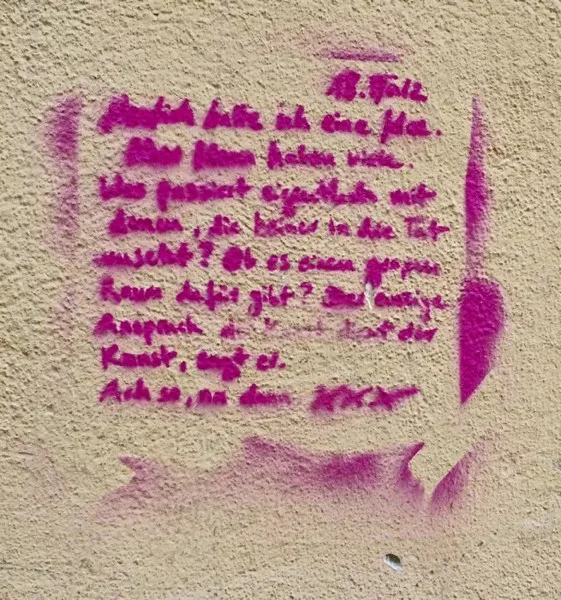 18. Satz
Neulich hatte ich eine Idee.
Aber Ideen haben viele.
Was passiert eigentlich mit
denen, die keiner in die Tat
umsetzt? Ob es einen
Raum dafür gibt? Der einzige
Anspruch der Kunst ist der
Kunst, sagt er.
Ach so, na dann